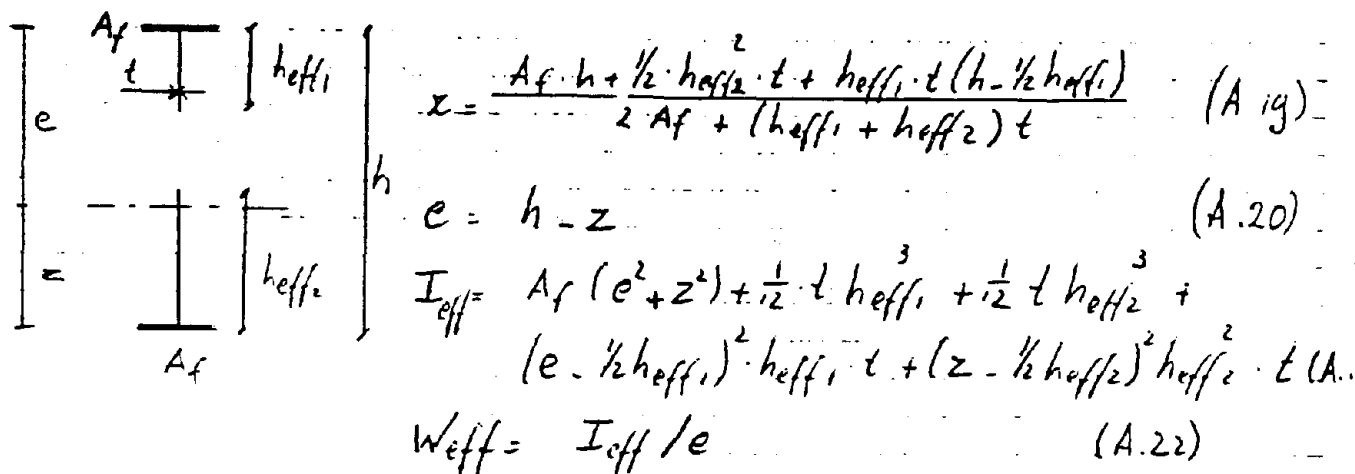 A_f
t
h_eff1
e
h
z
h_eff2
A_f
z = (A_f · h + 1/2 · h_eff2^2 · t + h_eff1 · t (h - 1/2 h_eff1)) / (2 A_f + (h_eff1 + h_eff2) t) (A 19)
e = h - z (A.20)
I_eff = A_f (e^2 + z^2) + 1/12 · t h_eff1^3 + 1/12 t h_eff2^3 +
(e - 1/2 h_eff1)^2 · h_eff1 · t + (z - 1/2 h_eff2)^2 h_eff2^2 · t (A..
W_eff = I_eff / e (A.22)